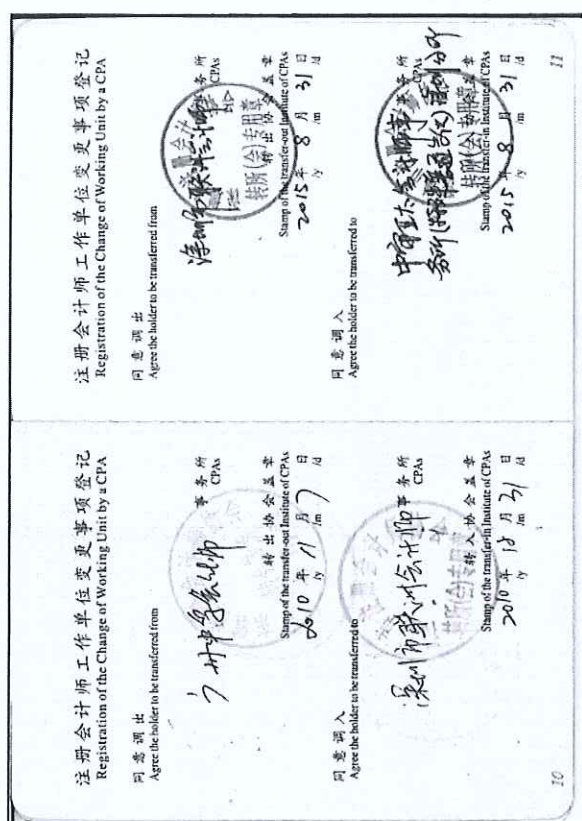 注册会计师工作单位变更事项登记
Registration of the Change of Working Unit by a CPA
同意调出
Agree the holder to be transferred from
事务所
CPAs
转出协会盖章
Stamp of the transfer-out Institute of CPAs
2010 年 11 月 7 日
/y /m /d
同意调入
Agree the holder to be transferred to
深圳市联洲会计师 事务所
CPAs
转入协会盖章
Stamp of the transfer-in Institute of CPAs
2010 年 12 月 31 日
/y /m /d
转所(会)专用章
10
注册会计师工作单位变更事项登记
Registration of the Change of Working Unit by a CPA
同意调出
Agree the holder to be transferred from
深圳市联洲会计师 事务所
CPAs
转出协会盖章
Stamp of the transfer-out Institute of CPAs
转所(会)专用章
2015 年 8 月 31 日
/y /m /d
同意调入
Agree the holder to be transferred to
中审亚太会计师事
务所(特殊普通合伙)深圳分所
CPAs
Stamp of the transfer-in Institute of CPAs
转所(会)专用章
2015 年 8 月 31 日
/y /m /d
11